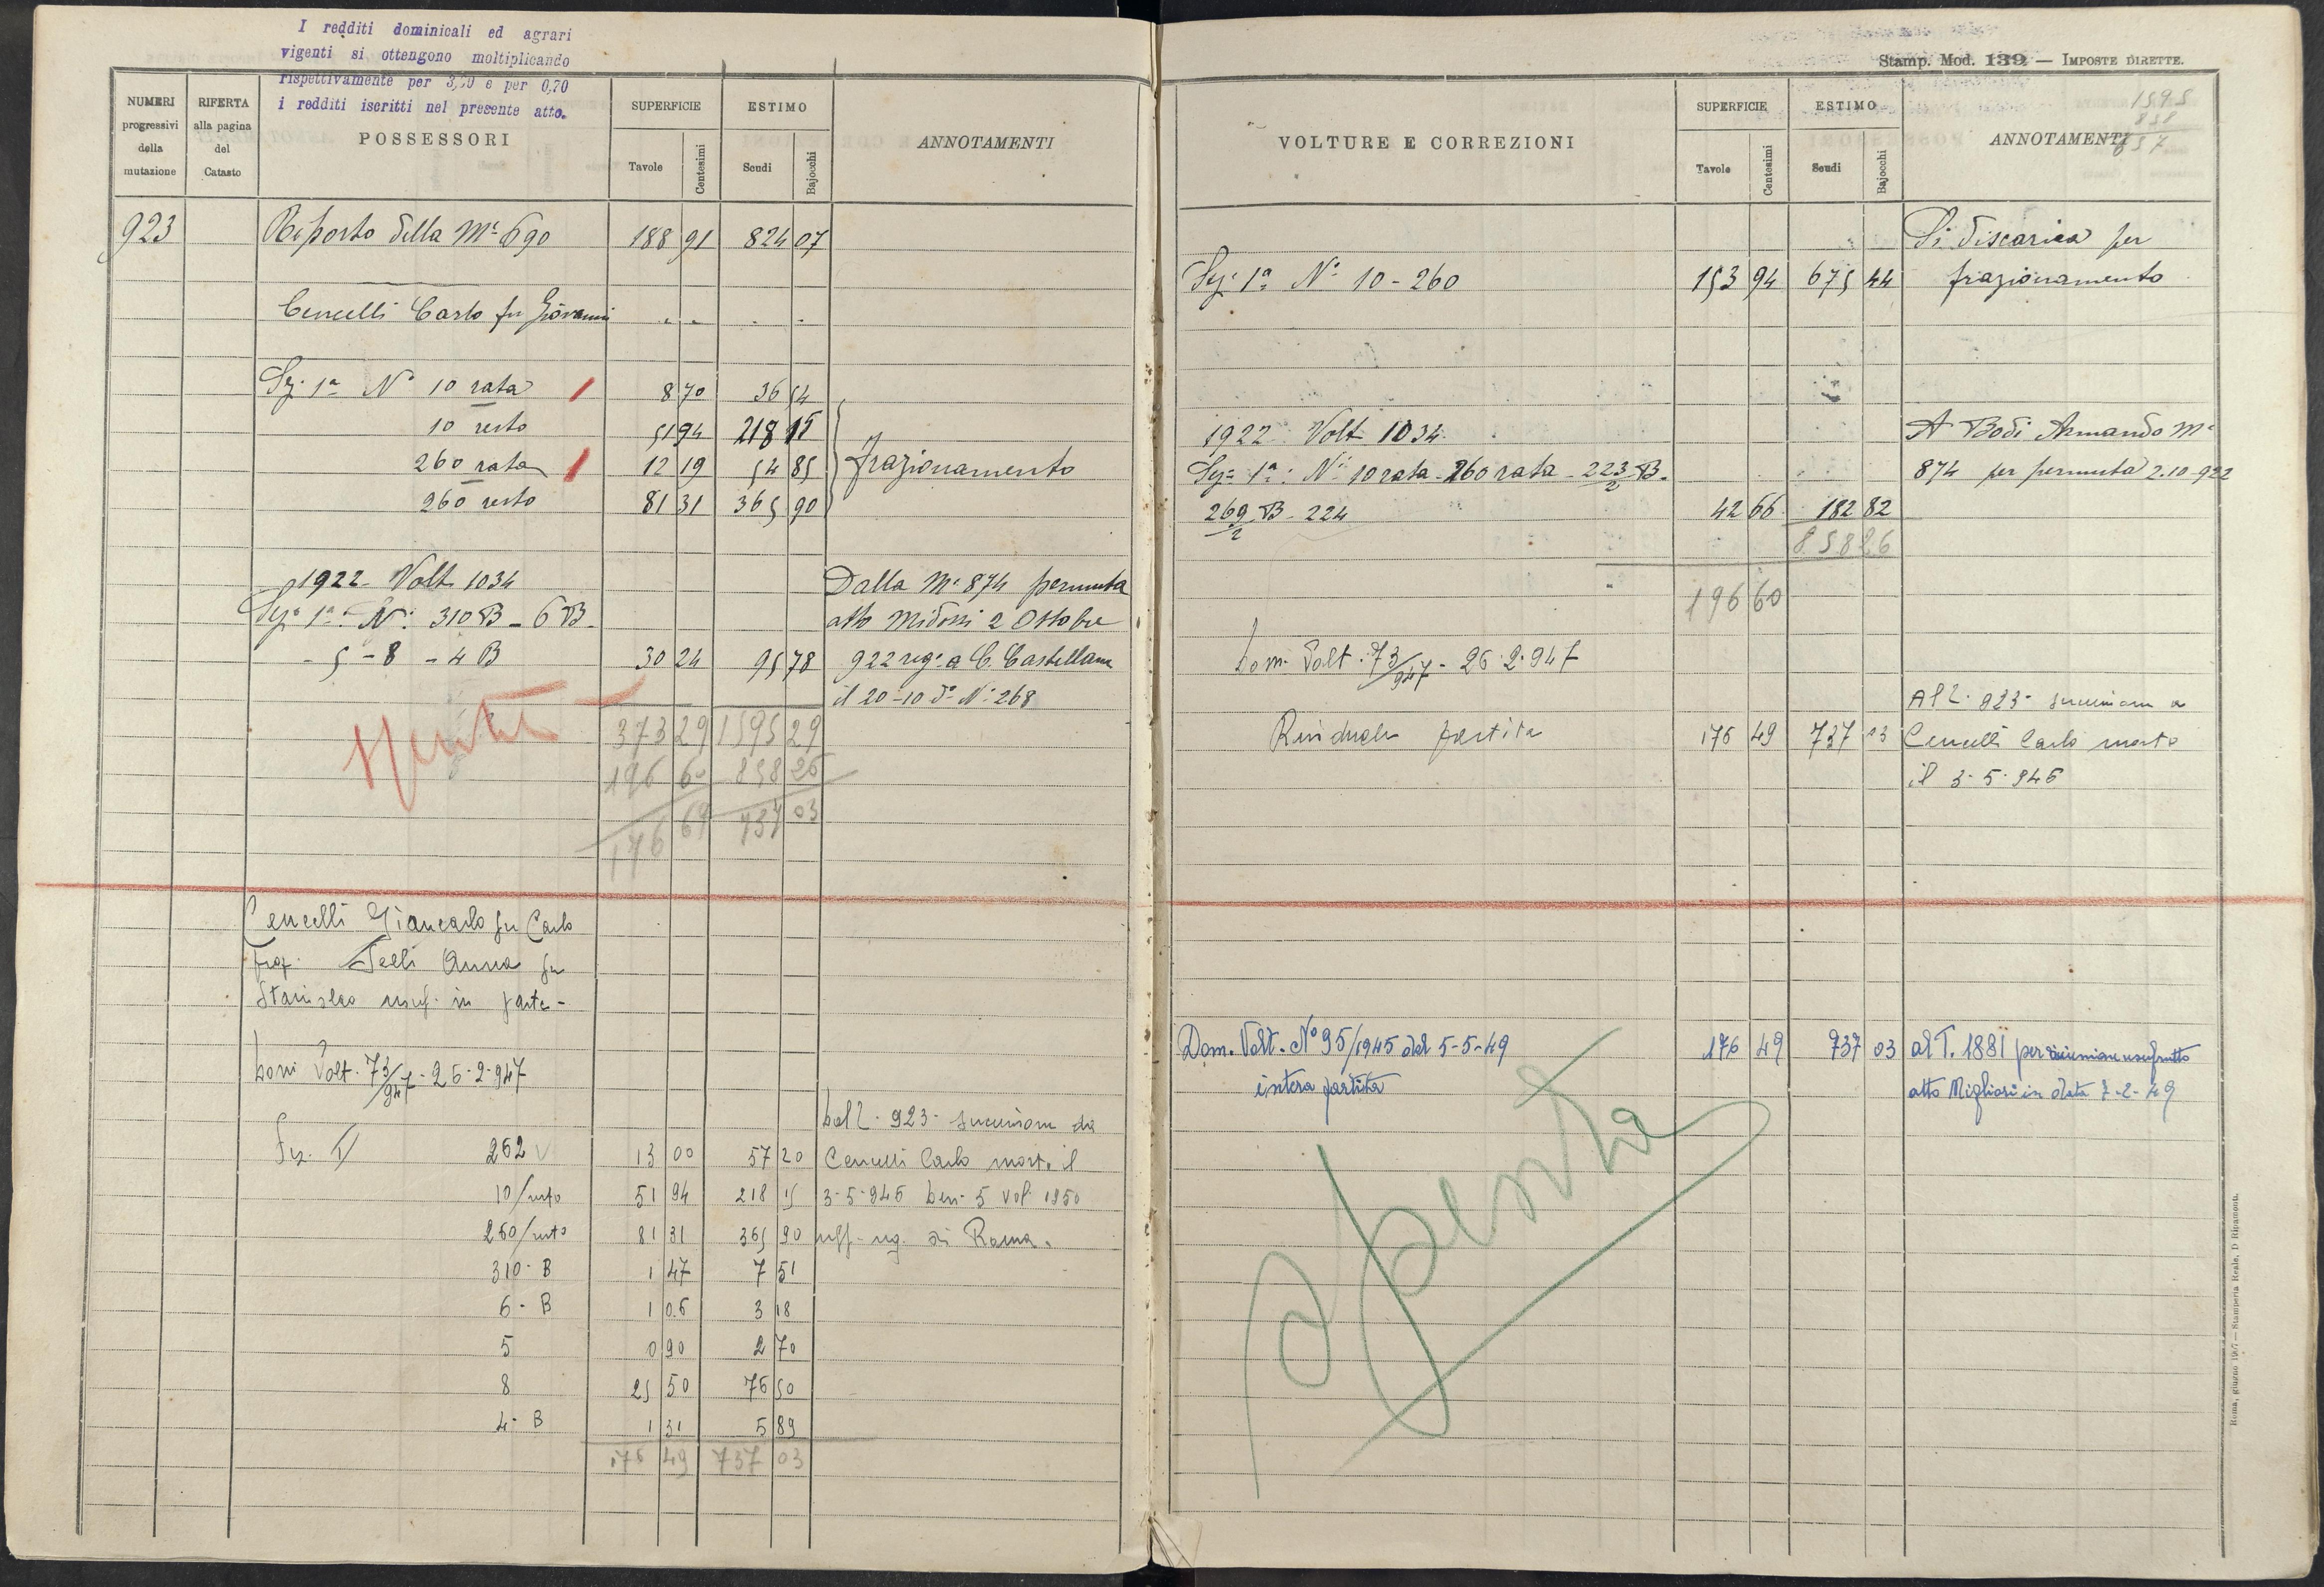 I redditi dominicali ed agrari
vigenti si ottengono moltiplicando
rispettivamente per 3,70 e per 0,70
i redditi iscritti nel presente atto.
NUMERI progressivi della mutazione
RIFERTA alla pagina del Catasto
POSSESSORI
SUPERFICIE
Tavole Centesimi
ESTIMO
Scudi Bajocchi
ANNOTAMENTI
923 Riporto della Mª 690 188 91 824 07
Cencelli Carlo fu Giovanni
Sez. 1ª Nº 10 rata 8 70 36 54
10 resto 51 94 218 15
260 rata 12 19 54 85 frazionamento
260 resto 81 31 365 90
1922 - Volt 1034 Dalla Mª 874 permuta
Sezª 1ª Nº 310 B - 6 B - atto Midossi 2 Ottobre
- 5 - 8 - 4 B 30 24 95 78 922 regº a C. Castellana
il 20-10 dº Nº 268
Spenta
373 29 1595 29
196 60 858 26
176 69 737 03
Cencelli Giancarlo fu Carlo
prop. Felli Anna fu
Stanislao usuf. in parte -
Dom Volt. 73/947 - 26-2-947
Dal 2 - 923 - successione da
Sez. I 262 13 00 57 20 Cencelli Carlo morto il
10/resto 51 94 218 15 3-5-946 Den. 5 vol. 1250
260/resto 81 31 365 90 uff. reg. di Roma.
310 - B 1 47 7 51
6 - B 1 06 3 18
5 0 90 2 70
8 25 50 76 50
4 - B 1 31 5 89
176 49 737 03
Stamp. Mod. 139 — IMPOSTE DIRETTE.
VOLTURE E CORREZIONI
SUPERFICIE
Tavole Centesimi
ESTIMO
Scudi Bajocchi
ANNOTAMENTI
1595
858
Si discarica per
Sez. 1ª Nº 10 - 260 153 94 675 44 frazionamento
1922 Volt 1034 A Bodi Armando Mª
Sezª 1ª: Nº 10 rata - 260 rata - 223/2 B - 874 per permuta 2.10.922
269/2 B - 224 42 66 182 82
858 26
196 60
Dom. Volt. 73/947 - 26.2.947
Al 2. 923 - successione a
Residuale partita 176 49 737 03 Cencelli Carlo morto
il 3-5-946
Dom. Volt. Nº 95/1945 del 5-5-49 176 49 737 03 al T. 1881 per riunione usufrutto
intera partita atto Migliori in data 7-2-49
Spenta
Roma, giugno 1907 — Stamperia Reale, D. Ripamonti.